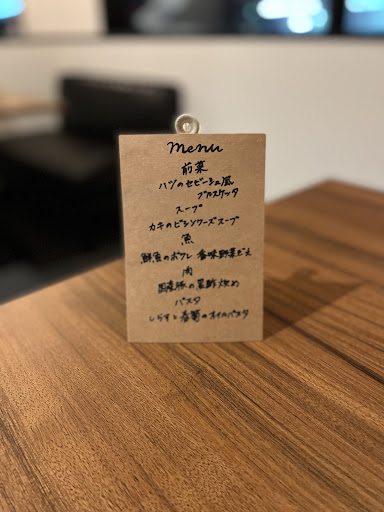 menu
前菜
ハツのセビーシェ風
ブルスケッタ
スープ
カキのビシソワーズスープ
魚
鮮魚のポワレ 香味野菜ぞえ
肉
国産豚の黒酢炒め
パスタ
しらすと春菊のオイルパスタ